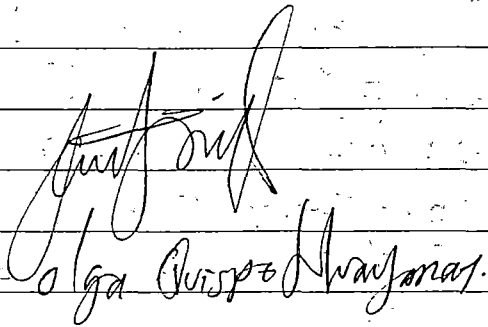 Olga Quispe Huaymas.